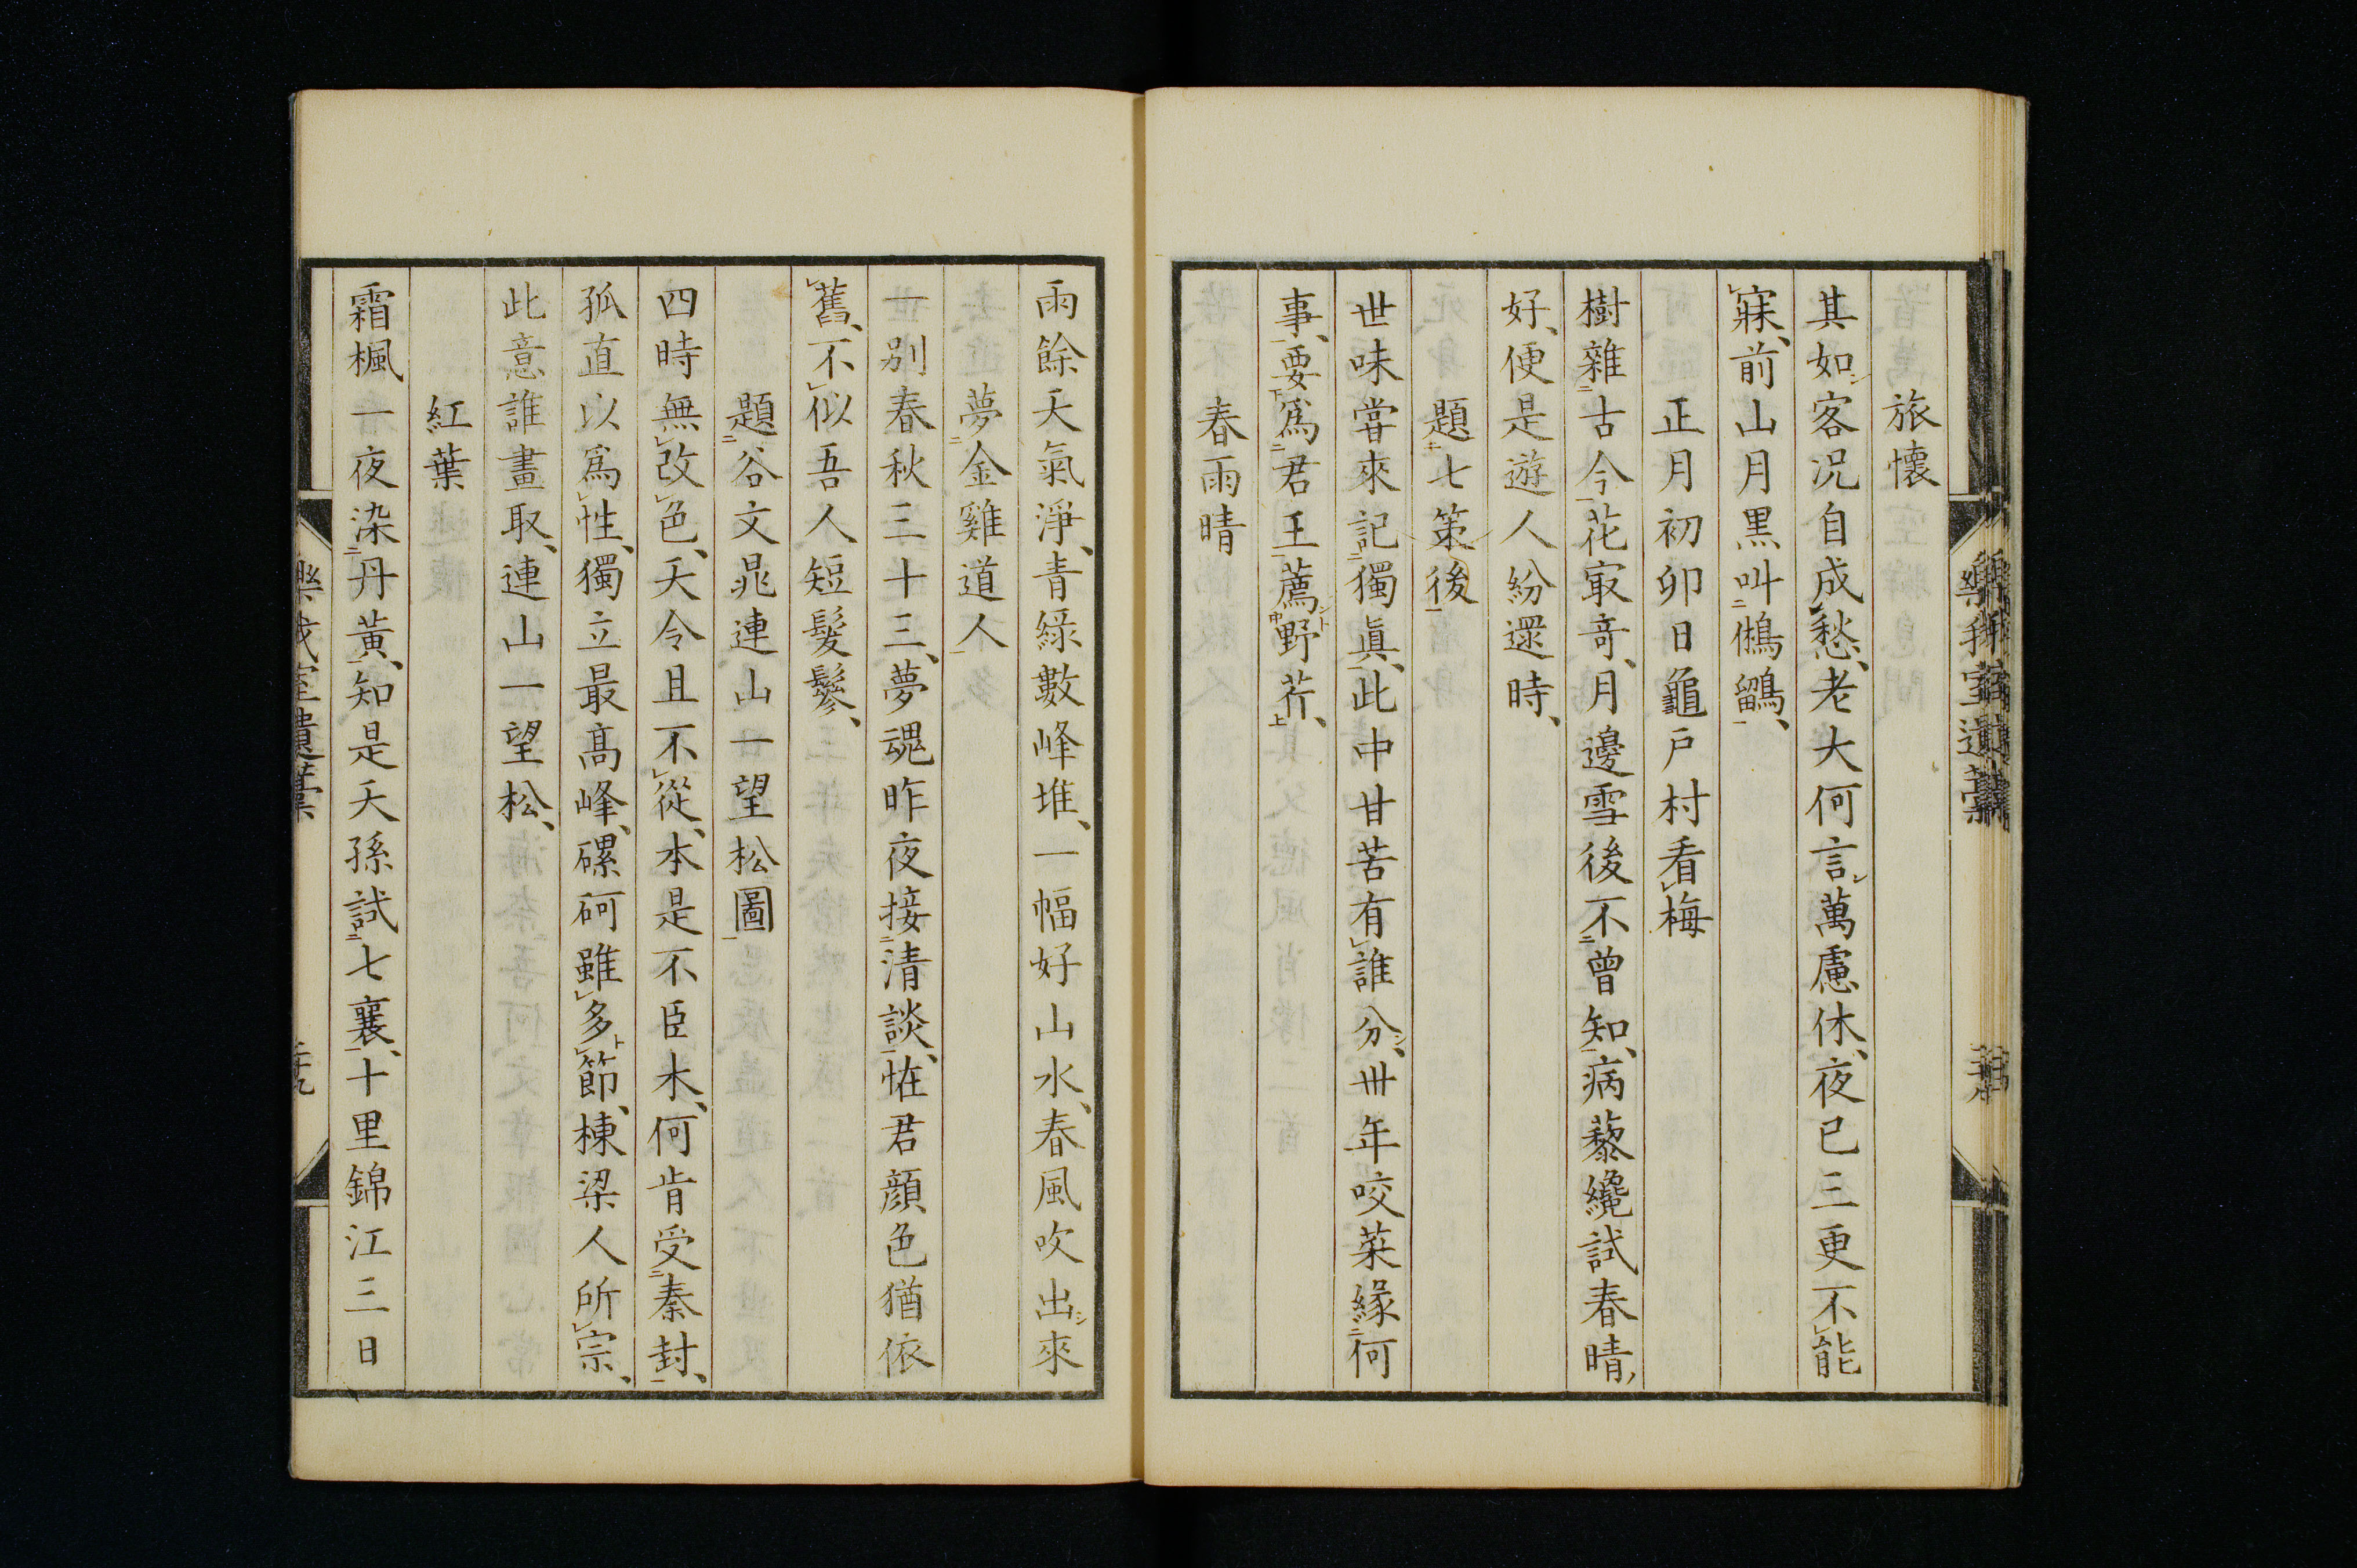 旅懷
其如客況自成愁、老大何言萬慮休、夜已三更不能
寐、前山月黒叫鵂鶹、
正月初卯日龜戸村看梅
樹雜古今花㝡奇、月邊雪後不曾知、病藜纔試春晴、
好、便是遊人紛還時、
題七策後
世味嘗來記獨眞、此中甘苦有誰分、卅年咬菜緣何
事、要爲君王薦野芹、
春雨晴
雨餘天氣淨、青綠數峰堆、一幅好山水、春風吹出來
夢金雞道人
一別春秋三十三、夢魂昨夜接清談、恠君顔色猶依
舊、不似吾人短髮鬖、
題谷文晁連山一望松圖
四時無改色、天令且不從、本是不臣木、何肯受秦封、
孤直以爲性、獨立最高峰、磥砢雖多節、棟梁人所宗、
此意誰畫取、連山一望松、
紅葉
霜楓一夜染丹黃、知是天孫試七襄、十里錦江三日